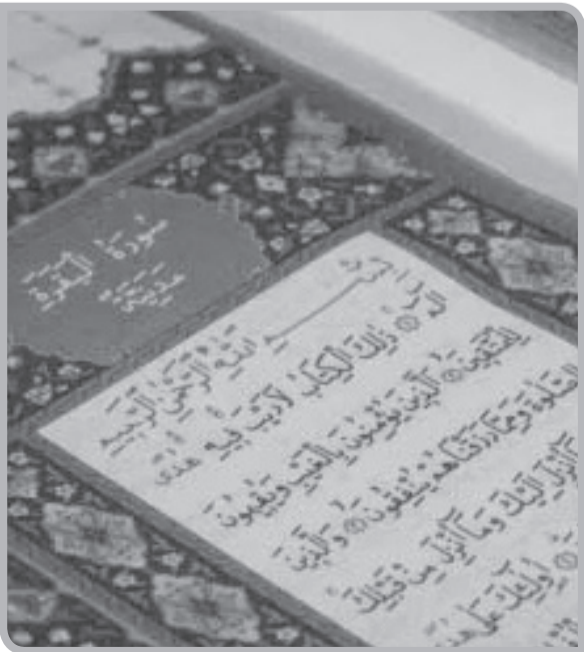 سُورَةُ الْبَقَرَةِ
مَدَنِيَّةٌ
بِسْمِ اللَّهِ الرَّحْمَٰنِ الرَّحِيمِ
الٓمٓ ۝ ذَٰلِكَ الْكِتَابُ لَا رَيْبَ فِيهِ هُدًى
لِلْمُتَّقِينَ ۝ الَّذِينَ يُؤْمِنُونَ بِالْغَيْبِ وَيُقِيمُونَ
الصَّلَاةَ وَمِمَّا رَزَقْنَاهُمْ يُنْفِقُونَ ۝ وَالَّذِينَ
أُنْزِلَ إِلَيْكَ وَمَا أُنْزِلَ مِنْ قَبْلِكَ
أُولَٰئِكَ عَلَىٰ هُدًى